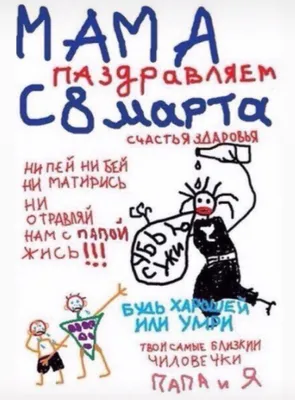 МАМА
ПАЗДРАВЛЯЕМ
С 8 МАРТА
СЧАСТЬЯ ЗДАРОВЬЯ
НИ ПЕЙ НИ БЕЙ
НИ МАТИРИСЬ
НИ
ОТРАВЛЯЙ
НАМ С ПАПОЙ
ЖИСЬ!!!
УБЬЮ
СУКИ
БУДЬ ХАРОШЕЙ
ИЛИ УМРИ
ТВОИ САМЫЕ БЛИЗКИИ
ЧИЛОВЕЧКИ
ПАПА И Я